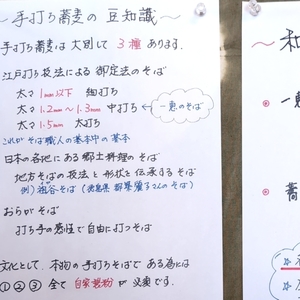 ～手打ち蕎麦の豆知識～
手打ち蕎麦は大別して3種あります。
江戸打ち技法による御定法のそば
太々1mm以下 細打ち
太々1.2mm～1.3mm 中打ち
一恵のそば
太々1.5mm 太打ち
これがそば職人の基本中の基本
日本の各地にある郷土料理のそば
地方そばの技法と形状と伝承するそば
例）祖谷そば（
さんのそば）
おらがそば
打ち手の感性で自由に打つそば
文化として、本物の手打ちそばである為には
①②③全て自家製粉が必須です。
～和
・一恵
・蕎